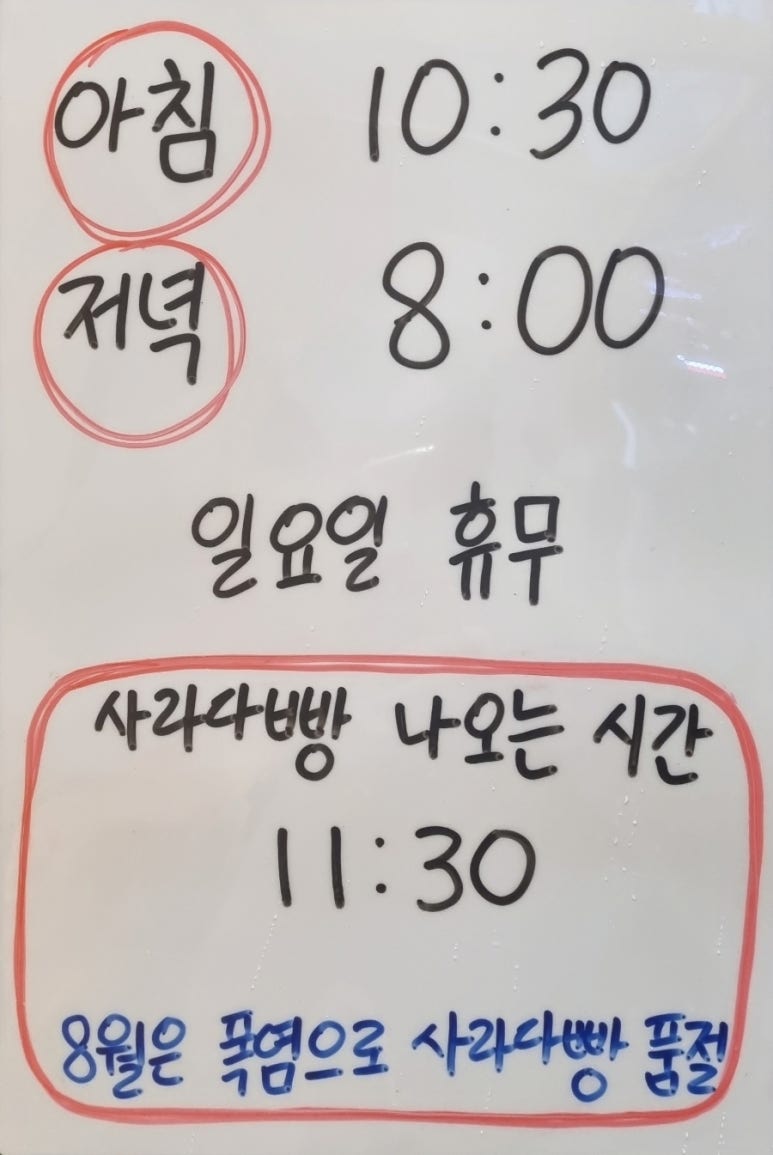 아침 10:30
저녁 8:00
일요일 휴무
사라다빵 나오는 시간
11:30
8월은 폭염으로 사라다빵 품절